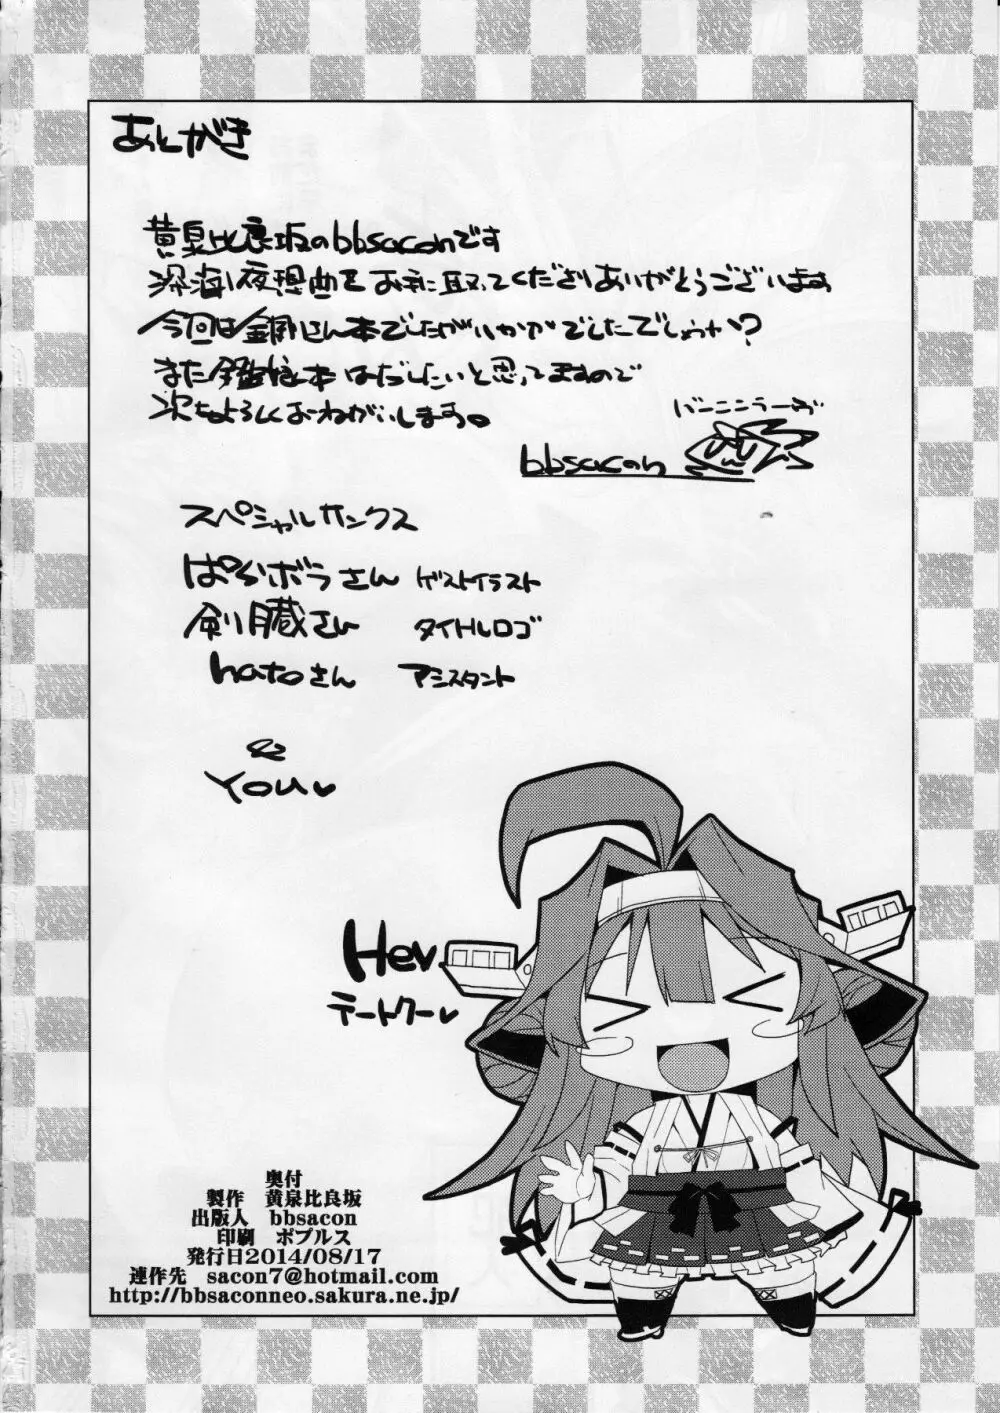 あとがき
黄泉比良坂のbbsaconです
深海夜想曲をお手に取ってくださりありがとうございます
今回は金剛さん本でしたがいかがでしたでしょうか？
また本はだしたいと思ってますので
次もよろしくおねがいします。
バーニンラーヴ
bbsacon
スペシャルサンクス
ぱらボラさん ゲストイラスト
剣月蔵さん タイトルロゴ
hatoさん アシスタント
&
YOU♥
Hey
テートクー♥
奥付
製作 黄泉比良坂
出版人 bbsacon
印刷 ポプルス
発行日2014/08/17
連作先 sacon7@hotmail.com
http://bbsaconneo.sakura.ne.jp/